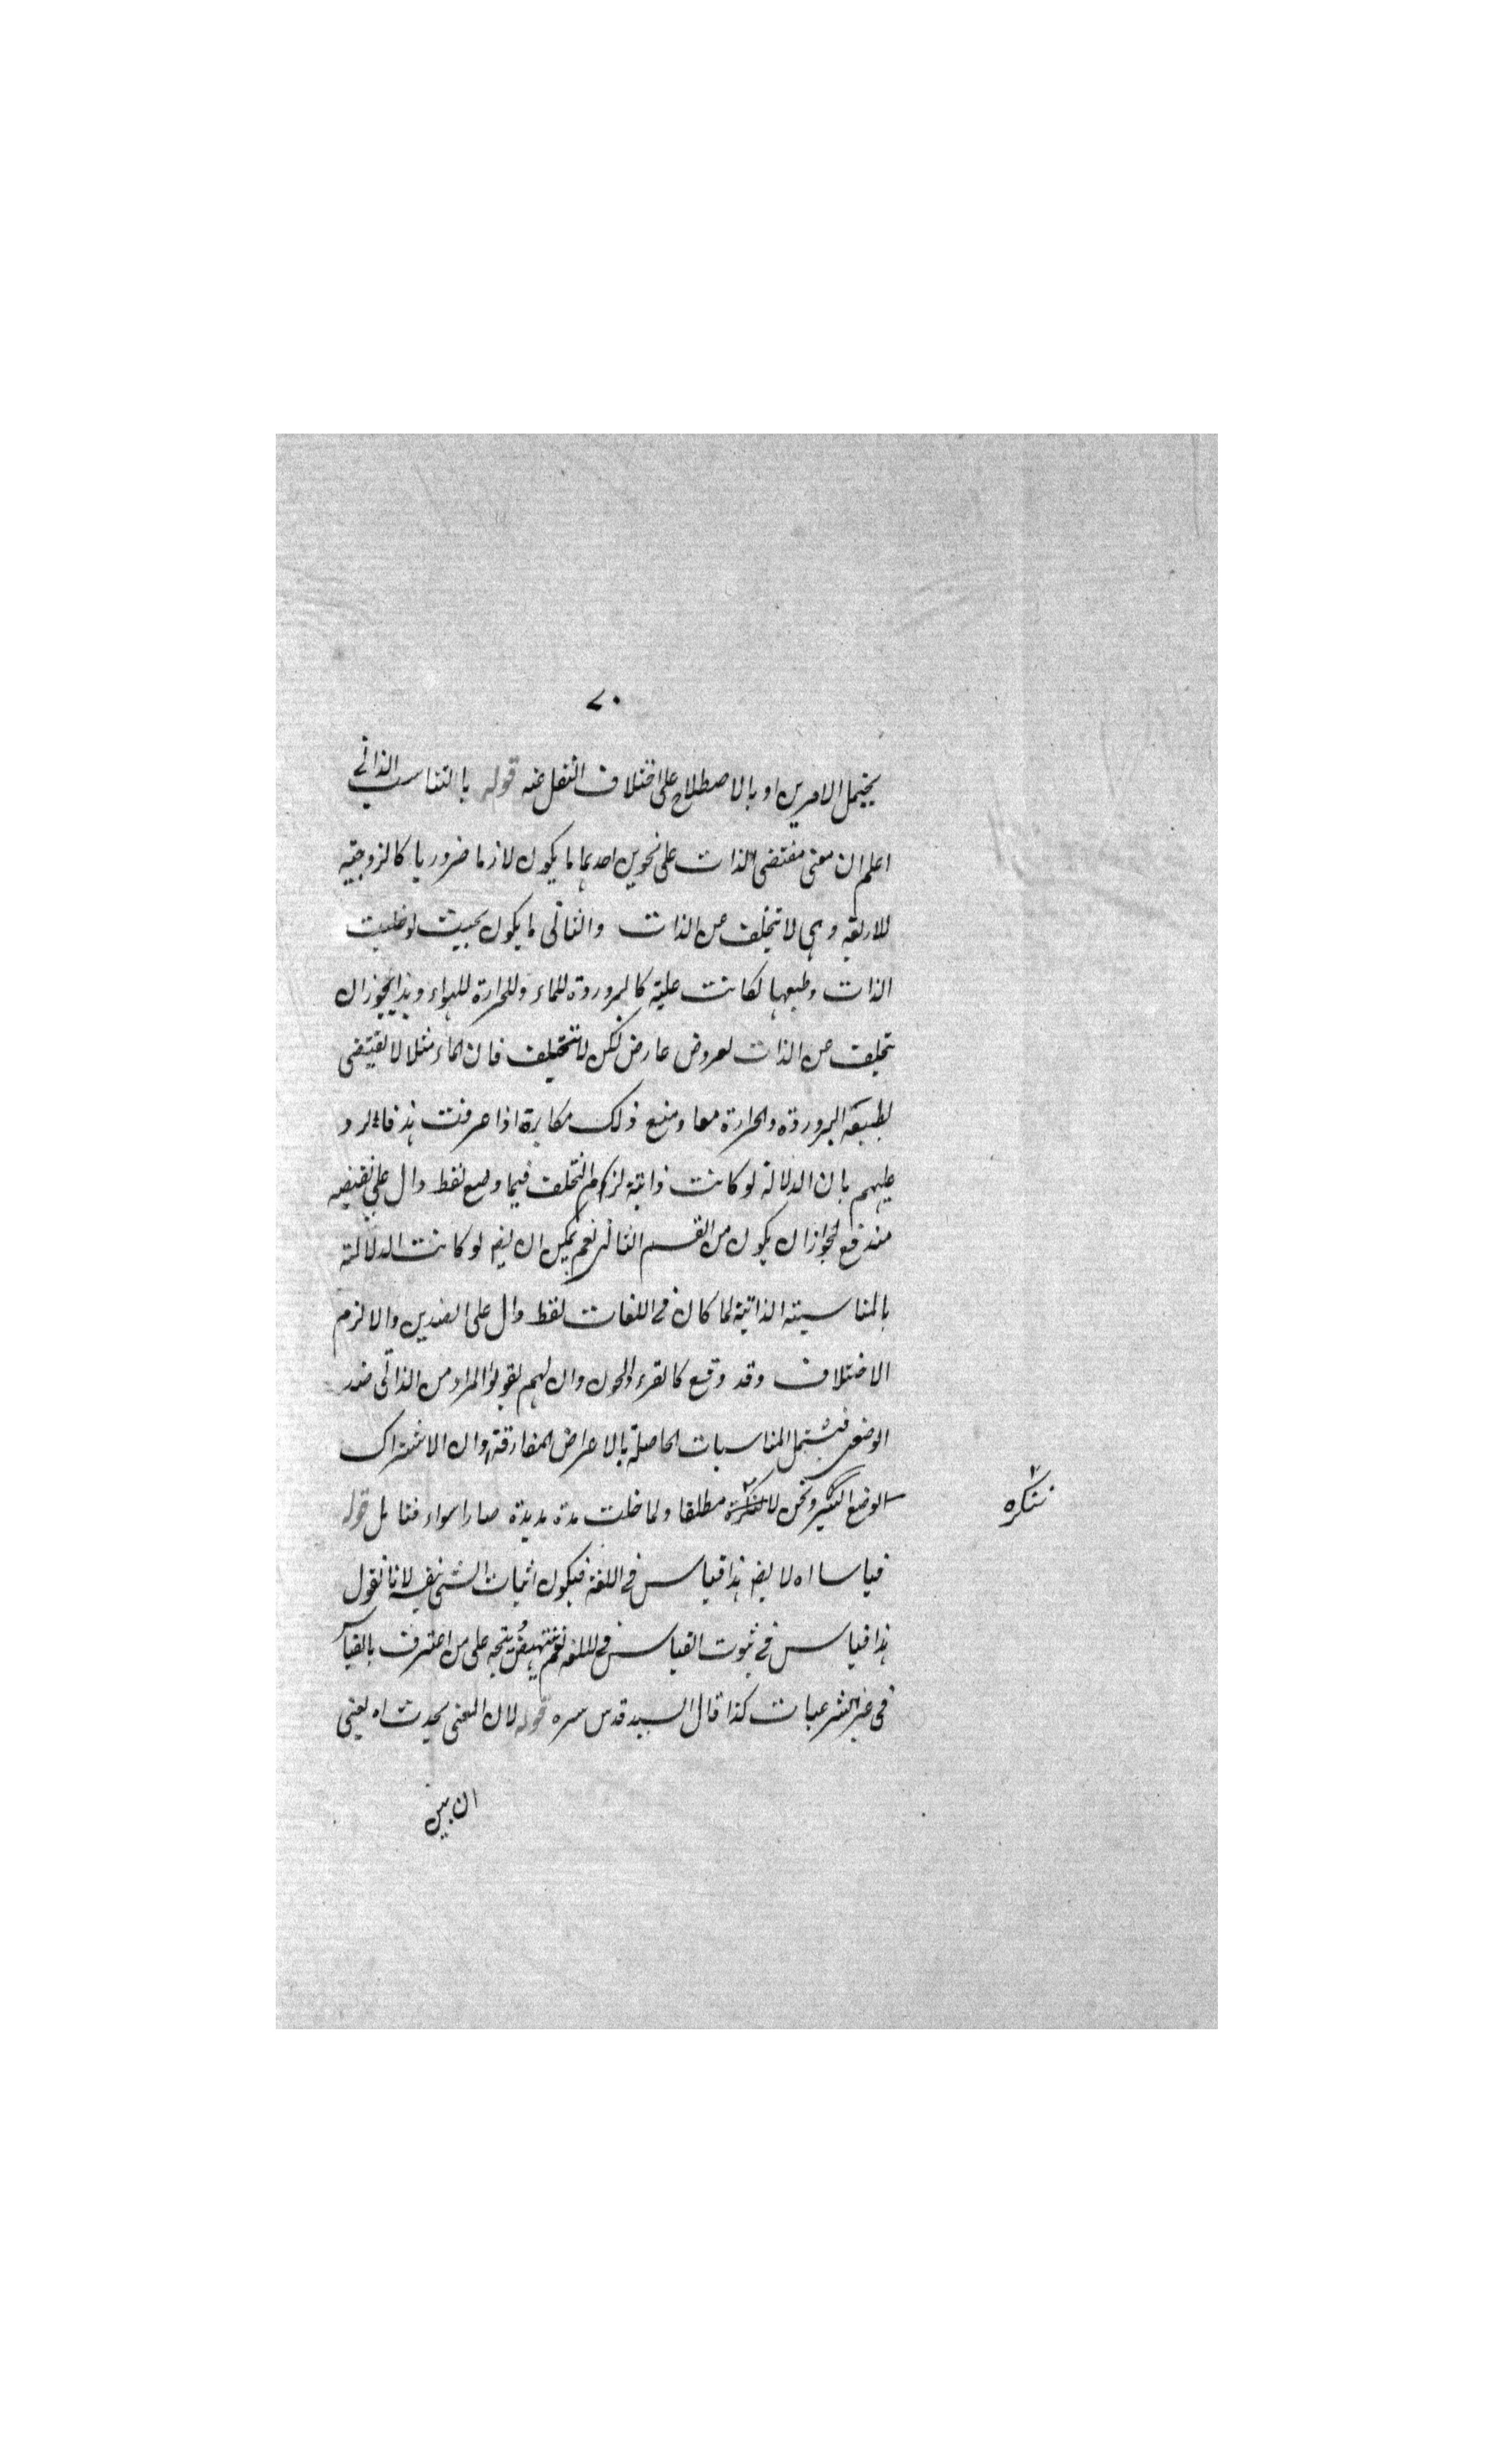 ٧٠
يحتمل الامرين او بالاصطلاح على اختلاف النقل عنه قوله بالتناسب الذاتي
اعلم ان معنى مقتضى الذات على نحوين احدهما ما يكون لازما ضروريا كالزوجية
للاربعة وهى لا تتخلف عن الذات والثانى ما يكون بحيث لو خليت
الذات وطبعها لكانت علية كالبرورده للماء وللحرارة للهواء وهذا يجوز ان
تخلف عن الذات لعروض عارض لكن لا تتخلف فان الماء مثلا لا يقتضى
لطبيعة البرورده والحرارة معا ومنع ذلك مكابرة اذا عرفت هذا فالرد
عليهم بان الدلالة لو كانت ذاتية لزم التخلف فيما وضع لفظ دال على نقيضه
مندفع لجواز ان يكون من القسم الثانى نعم يمكن ان يقم لو كانت الدلالة
بالمناسبة الذاتية لما كان فى اللغات لفظ دال على الضدين والا لزم
الاختلاف وقد وقع كالقرء والجون وان لهم يقولوا المراد من الذاتى ضد
الوضعى فيشتمل المناسبات الحاصلة بالاعراض المفارقة وان الاشتراك
الوضع ونحن لا ننكره مطلقا ولما خلت مدة مديدة صارا سواء فتامل قوله
ننكره
قياسا اه لا يقم هذا قياس فى اللغة فيكون اثبات الشئ بنفسه لانا نقول
هذا قياس في ثبوت القياس فى اللغة نعم يتجه على من اعترف بالقياس
فى غير الشرعيات كذا قال السيد قدس سره قوله لان المعنى يحدث اه يعنى
ان بين